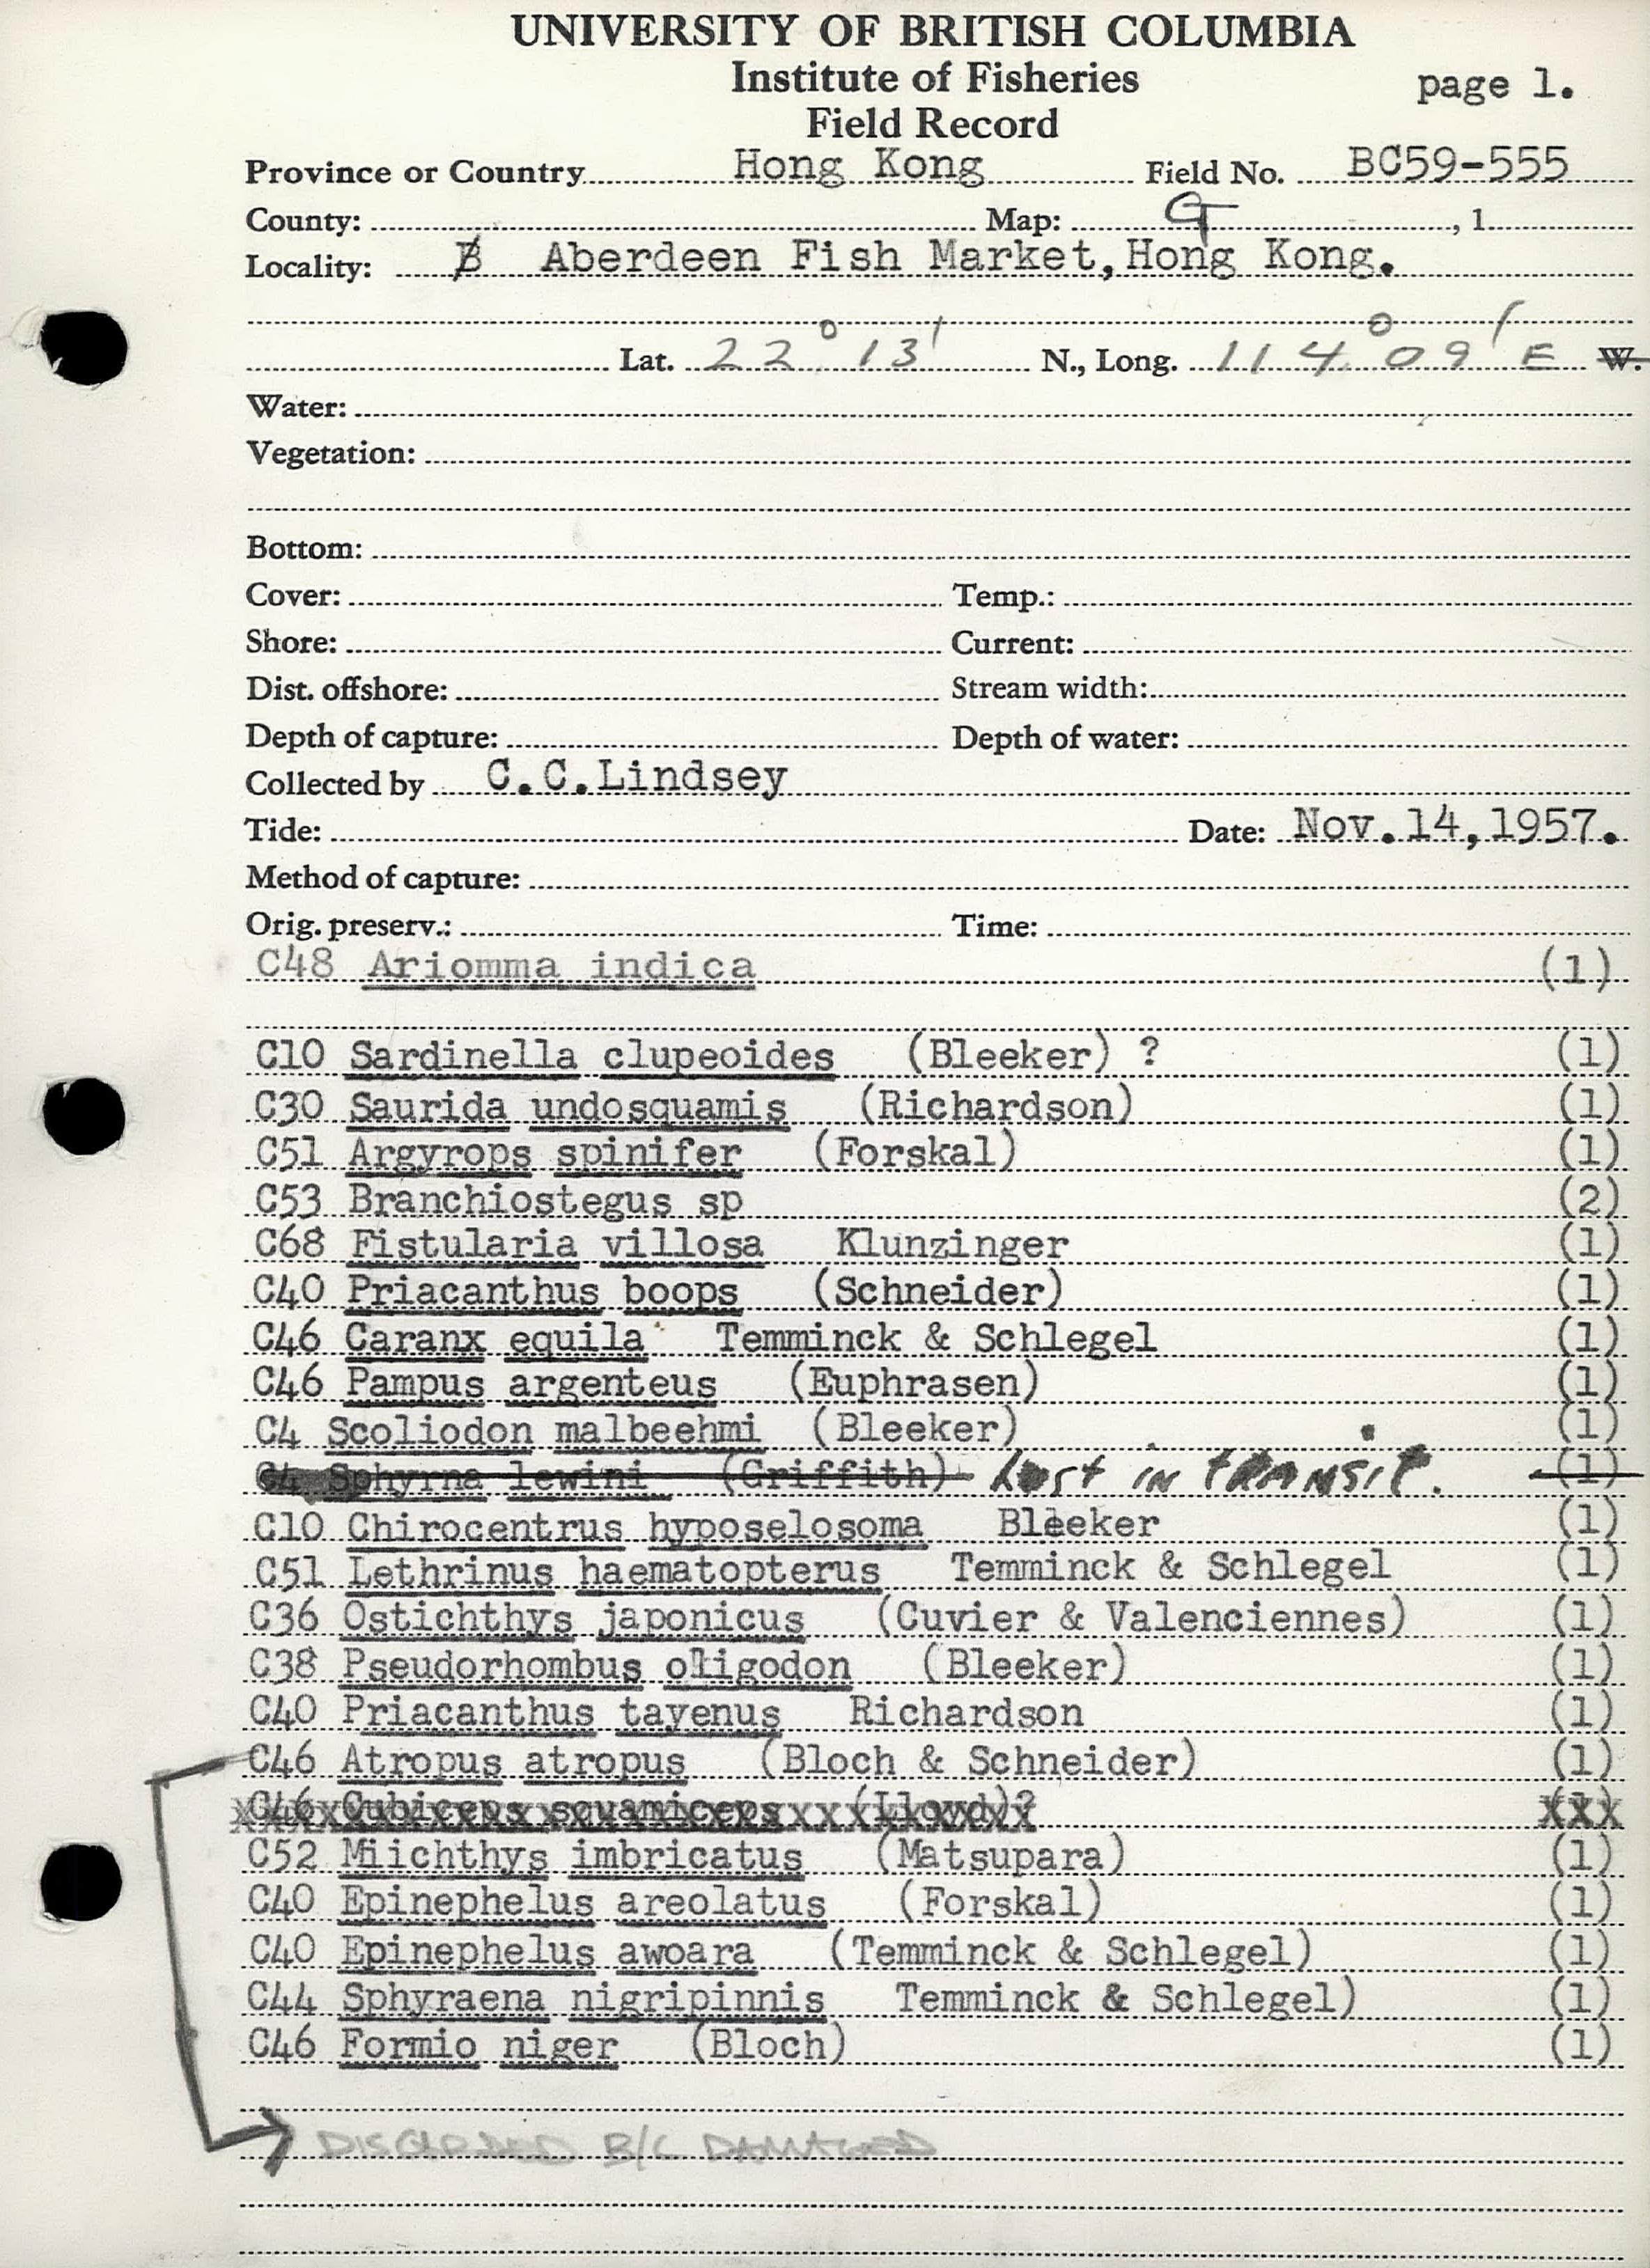 UNIVERSITY OF BRITISH COLUMBIA
Institute of Fisheries
page 1.
Field Record
Province or Country Hong Kong Field No. BC59-555
County: Map: G , 1
Locality: B Aberdeen Fish Market, Hong Kong.
Lat. 22° 13' N., Long. 114° 09' E W.
Water:
Vegetation:
Bottom:
Cover: Temp.:
Shore: Current:
Dist. offshore: Stream width:
Depth of capture: Depth of water:
Collected by C.C.Lindsey
Tide: Date: Nov.14,1957.
Method of capture:
Orig. preserv.: Time:
C48 Ariomma indica (1)
C10 Sardinella clupeoides (Bleeker) ? (1)
C30 Saurida undosquamis (Richardson) (1)
C51 Argyrops spinifer (Forskal) (1)
C53 Branchiostegus sp (2)
C68 Fistularia villosa Klunzinger (1)
C40 Priacanthus boops (Schneider) (1)
C46 Caranx equila Temminck & Schlegel (1)
C46 Pampus argenteus (Euphrasen) (1)
C4 Scoliodon malbeehmi (Bleeker) (1)
C4 Sphyrna lewini (Griffith) Lost in transit. (1)
C10 Chirocentrus hyposelosoma Bleeker (1)
C51 Lethrinus haematopterus Temminck & Schlegel (1)
C36 Ostichthys japonicus (Cuvier & Valenciennes) (1)
C38 Pseudorhombus oligodon (Bleeker) (1)
C40 Priacanthus tayenus Richardson (1)
C46 Atropus atropus (Bloch & Schneider) (1)
C46 Cubiceps squamiceps (Lloyd)? (1)
C52 Miichthys imbricatus (Matsupara) (1)
C40 Epinephelus areolatus (Forskal) (1)
C40 Epinephelus awoara (Temminck & Schlegel) (1)
C44 Sphyraena nigripinnis Temminck & Schlegel) (1)
C46 Formio niger (Bloch) (1)
DISCARDED B/C DAMAGED